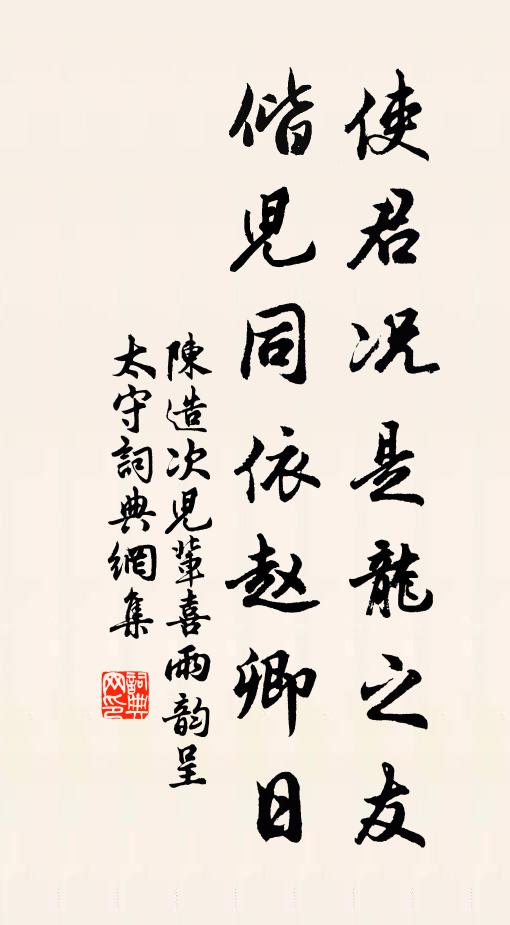 使君况是龍之友
偕兒同依赵卿日
陳造次兒輩喜雨韵呈
太守詞典網集
詞典網印